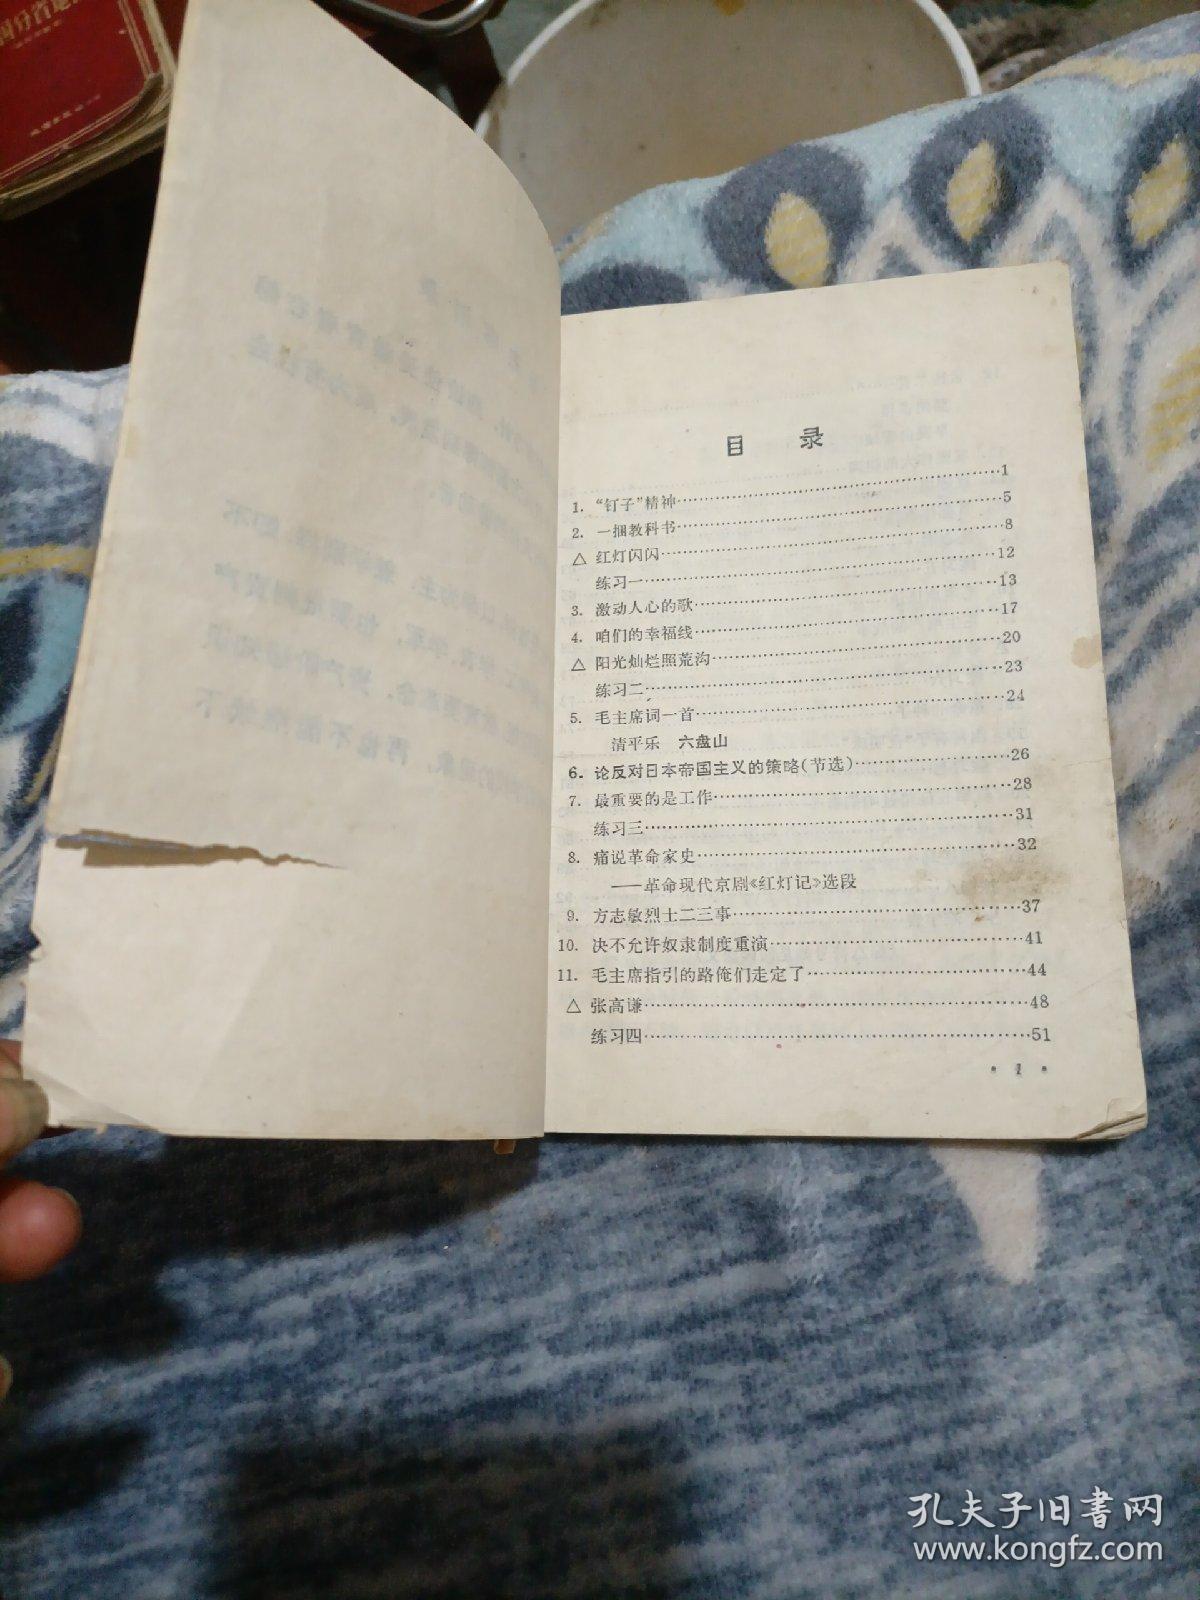 国分省地
目 录
1. “钉子”精神……1
2. 一捆教科书……5
△ 红灯闪闪……8
练习一……12
3. 激动人心的歌……13
4. 咱们的幸福线……17
△ 阳光灿烂照荒沟……20
练习二……23
5. 毛主席词一首……24
清平乐 六盘山
6. 论反对日本帝国主义的策略(节选)……26
7. 最重要的是工作……28
练习三……31
8. 痛说革命家史……32
——革命现代京剧《红灯记》选段
9. 方志敏烈士二三事……37
10. 决不允许奴隶制度重演……41
11. 毛主席指引的路俺们走定了……44
△ 张高谦……48
练习四……51
• 1 •
孔夫子旧書网
www.kongfz.com